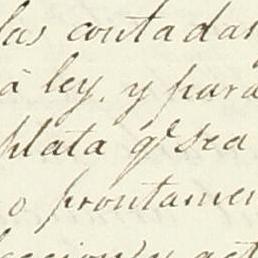 las contadas
â ley, y para
plata qᵉ sea
o prontamen